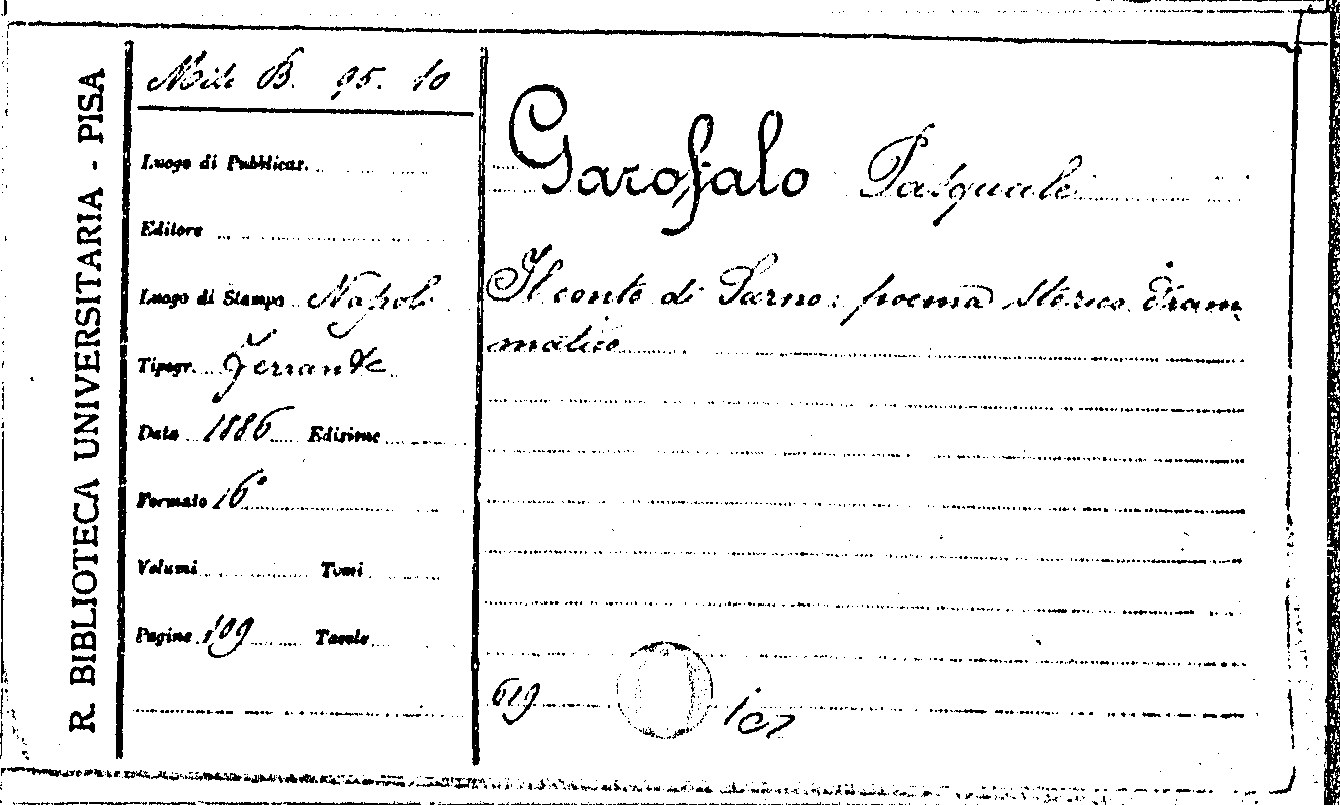 R. BIBLIOTECA UNIVERSITARIA - PISA
B. 95. 10
Luogo di Pubblicaz.
Editore
Luogo di Stampa Napoli
Tipogr. Ferrante
Data 1886 Edizione
Formato 16°
Volumi Tomi
Pagine 109 Tavole
Garofalo Pasquale
Il conte di Sarno: poema storico dram-
matico
619